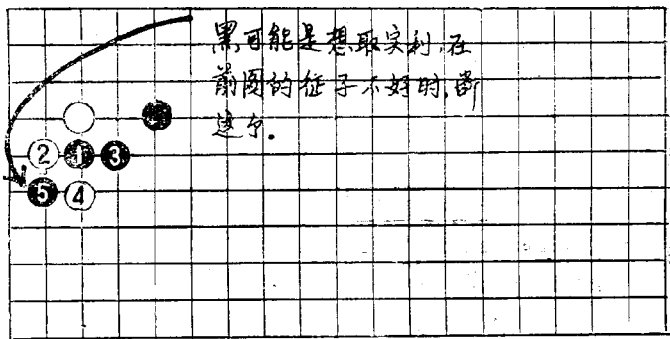 黑可能是想取实利,在
前图的征子不好时,断
这个.
② ① ③
⑤ ④